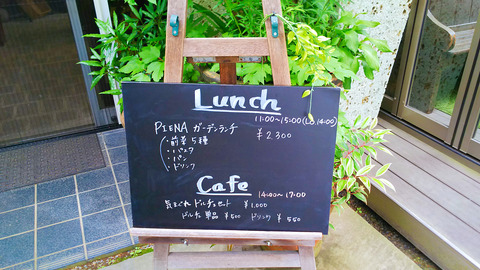 Lunch
11:00~15:00(L.O.14:00)
PIENA ガーデンランチ ¥2.300
・前菜5種
・パスタ
・パン
・ドリンク
Cafe
14:00~17:00
気まぐれドルチェセット ¥1,000
ドルチェ単品 ¥500 ドリンク ¥550